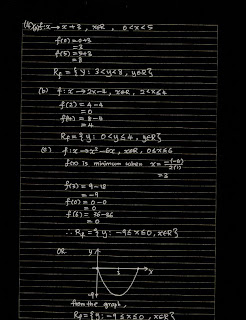 (4)(a) f:x→x+3, x∈R, 0<x<5
f(0)=0+3
=3
f(5)=5+3
=8
Rf = {y: 3<y<8, y∈R}
(b) f:x→2x-4, x∈R, 2<x≤4
f(2)=4-4
=0
f(4)=8-4
=4
Rf={y: 0<y≤4, y∈R}
(c) f:x→x²-6x, x∈R, 0≤x≤6
f(x) is minimum when x=-(-6)/2(1)
=3
f(3)=9-18
=-9
f(0)=0-0
=0
f(6)=36-36
=0
∴Rf={y: -9≤x≤0, x∈R}
OR y
x
-9
from the graph,
Rf={y: -9≤x≤0, x∈R}